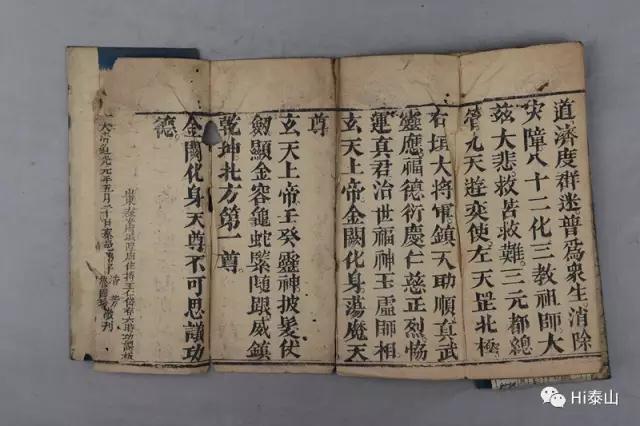 道濟度群迷普爲衆生消除
灾障八十二化三教祖師大
玆大悲救苦救難。三元都總
管九天遊奕使。左天罡北極
右垣大將軍鎮天助順真武
靈應福德衍慶仁慈正烈恊
運真君治世福神玉虛師相
玄天上帝金闕化身蕩魔天
尊
玄天上帝壬癸靈神披髮仗
劔顯金容龜蛇緊随跟威鎮
乾坤北方第一尊。
金闕化身天尊不可思議功
德
山東泰安府
大清道光元年五月二十日泰邑 敬刊
Hi泰山